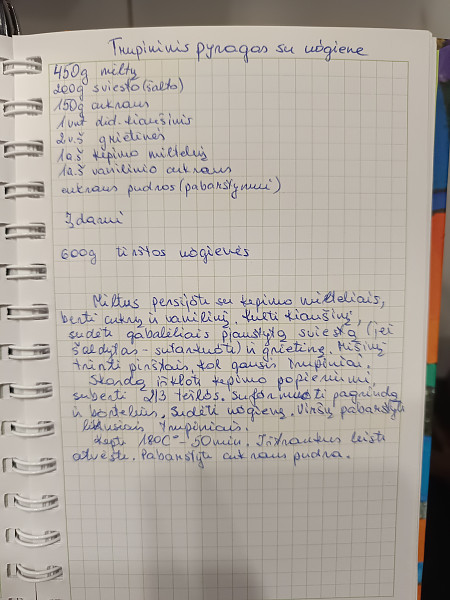 Trupininis pyragas su uogiene
450g miltų
200g sviesto (šalto)
150g cukraus
1 vnt did. kiaušinis
2 v.š grietinės
1 a.š kepimo miltelių
1 a.š vanilinio cukraus
cukraus pudros (pabarstymui)
Įdarui
600g tirštos uogienės
Miltus persijoti su kepimo milteliais,
berti cukrų ir vanilinį, įmušti kiaušinį,
sudėti gabalėliais pjaustytą sviestą (jei
šaldytas - sutarkuoti) ir grietinę. Mišinį
trinti pirštais, kol gausis trupiniai.
Skardą iškloti kepimo popieriumi,
suberti 2/3 tešlos. Suformuoti pagrindą
ir bortelius. Sudėti uogienę. Viršų pabarstyti
likusiais trupiniais.
Kepti 180C° - 50 min. Ištraukus leisti
atvėsti. Pabarstyti cukraus pudra.